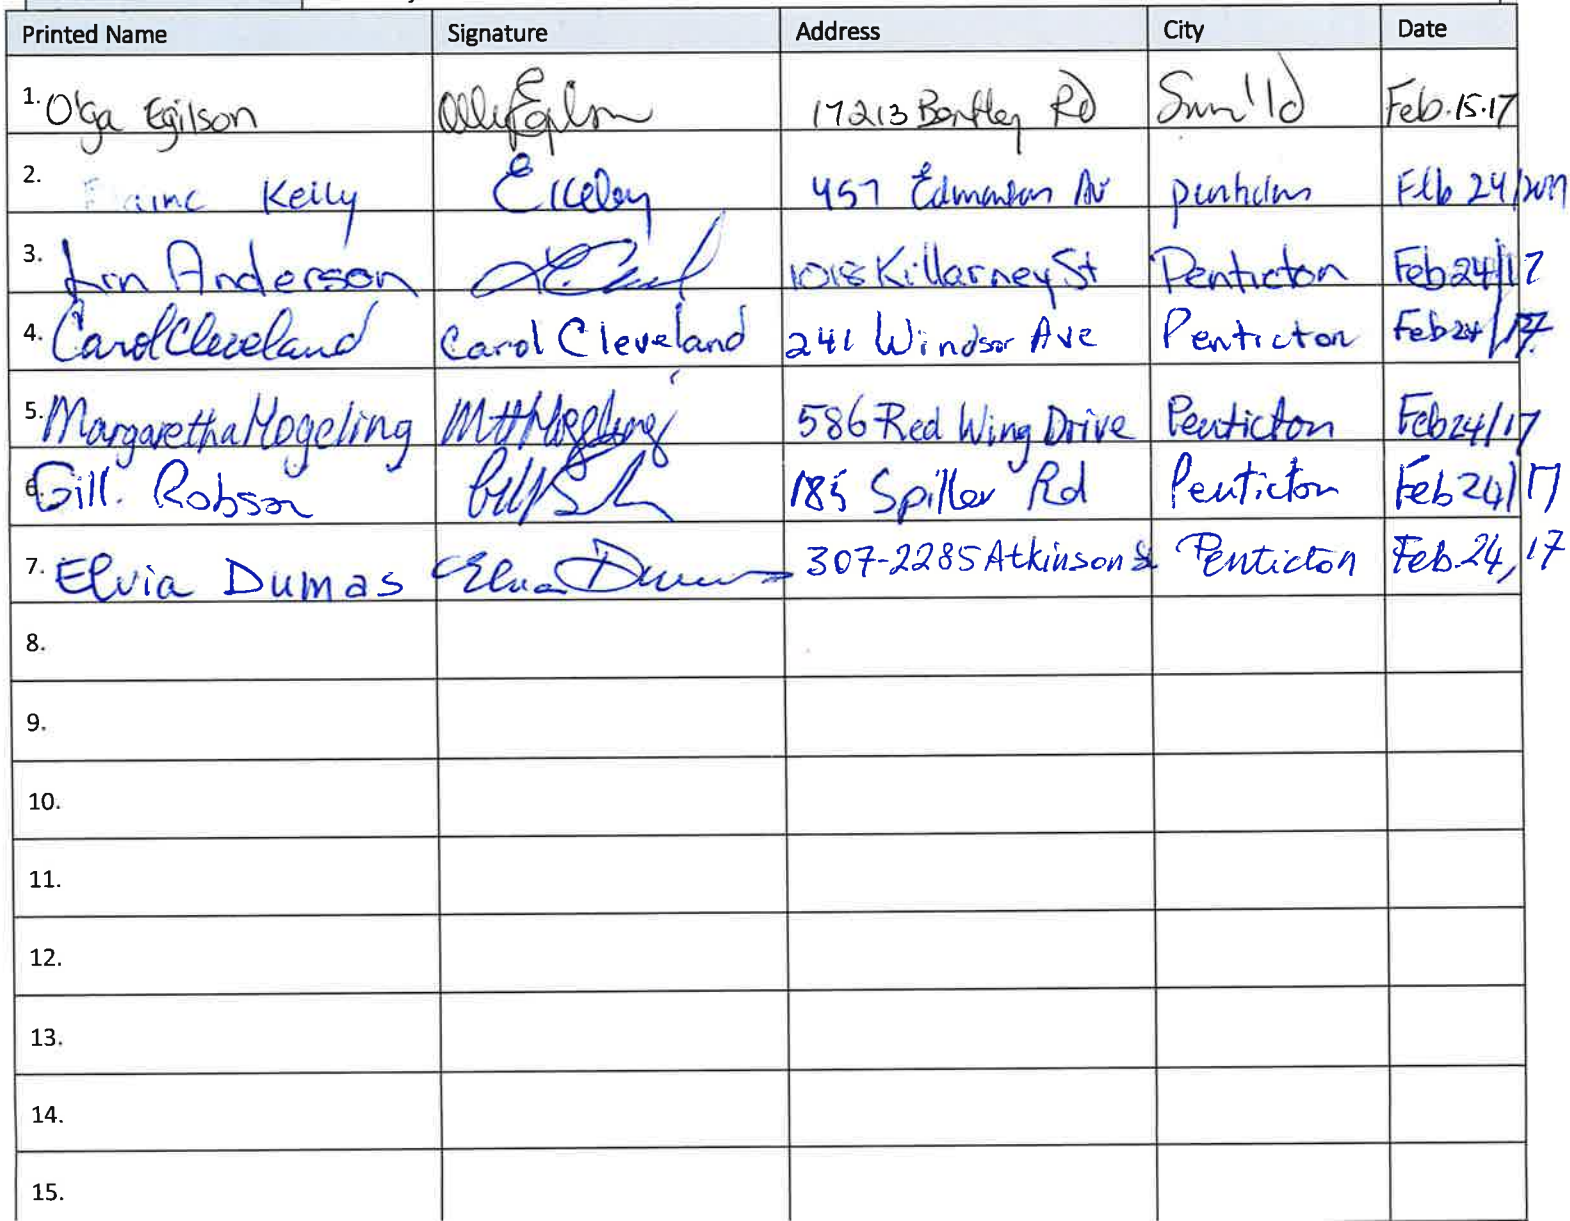 Printed Name Signature Address City Date
1. Olga Egilson 17213 Bentley Rd Sum'ld Feb.15.17
2. Elaine Kelly EKelly 457 Edmonton Av Feb 24/2017
3. Lin Anderson 1018 Killarney St Penticton Feb 24/17
4. Carol Cleveland Carol Cleveland 241 Windsor Ave Penticton Feb 24/17
5. Margaretha Hogeling MHHogeling 586 Red Wing Drive Penticton Feb 24/17
6. Gill. Robson 185 Spiller Rd Penticton Feb 24/17
7. Elvia Dumas Elvia Dumas 307-2285 Atkinson St Penticton Feb. 24, 17
8.
9.
10.
11.
12.
13.
14.
15.